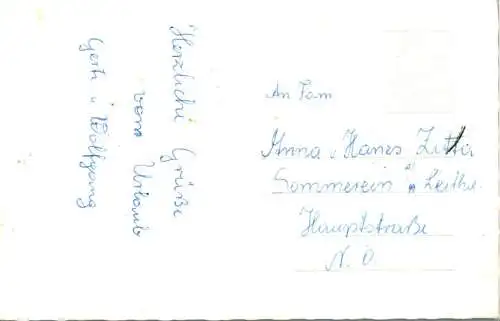 Herzliche Grüße
vom Urlaub
Gerti u Wolfgang
An Fam
Anna u Hanes
Sommerein Leitha
Hauptstraße
N. Ö